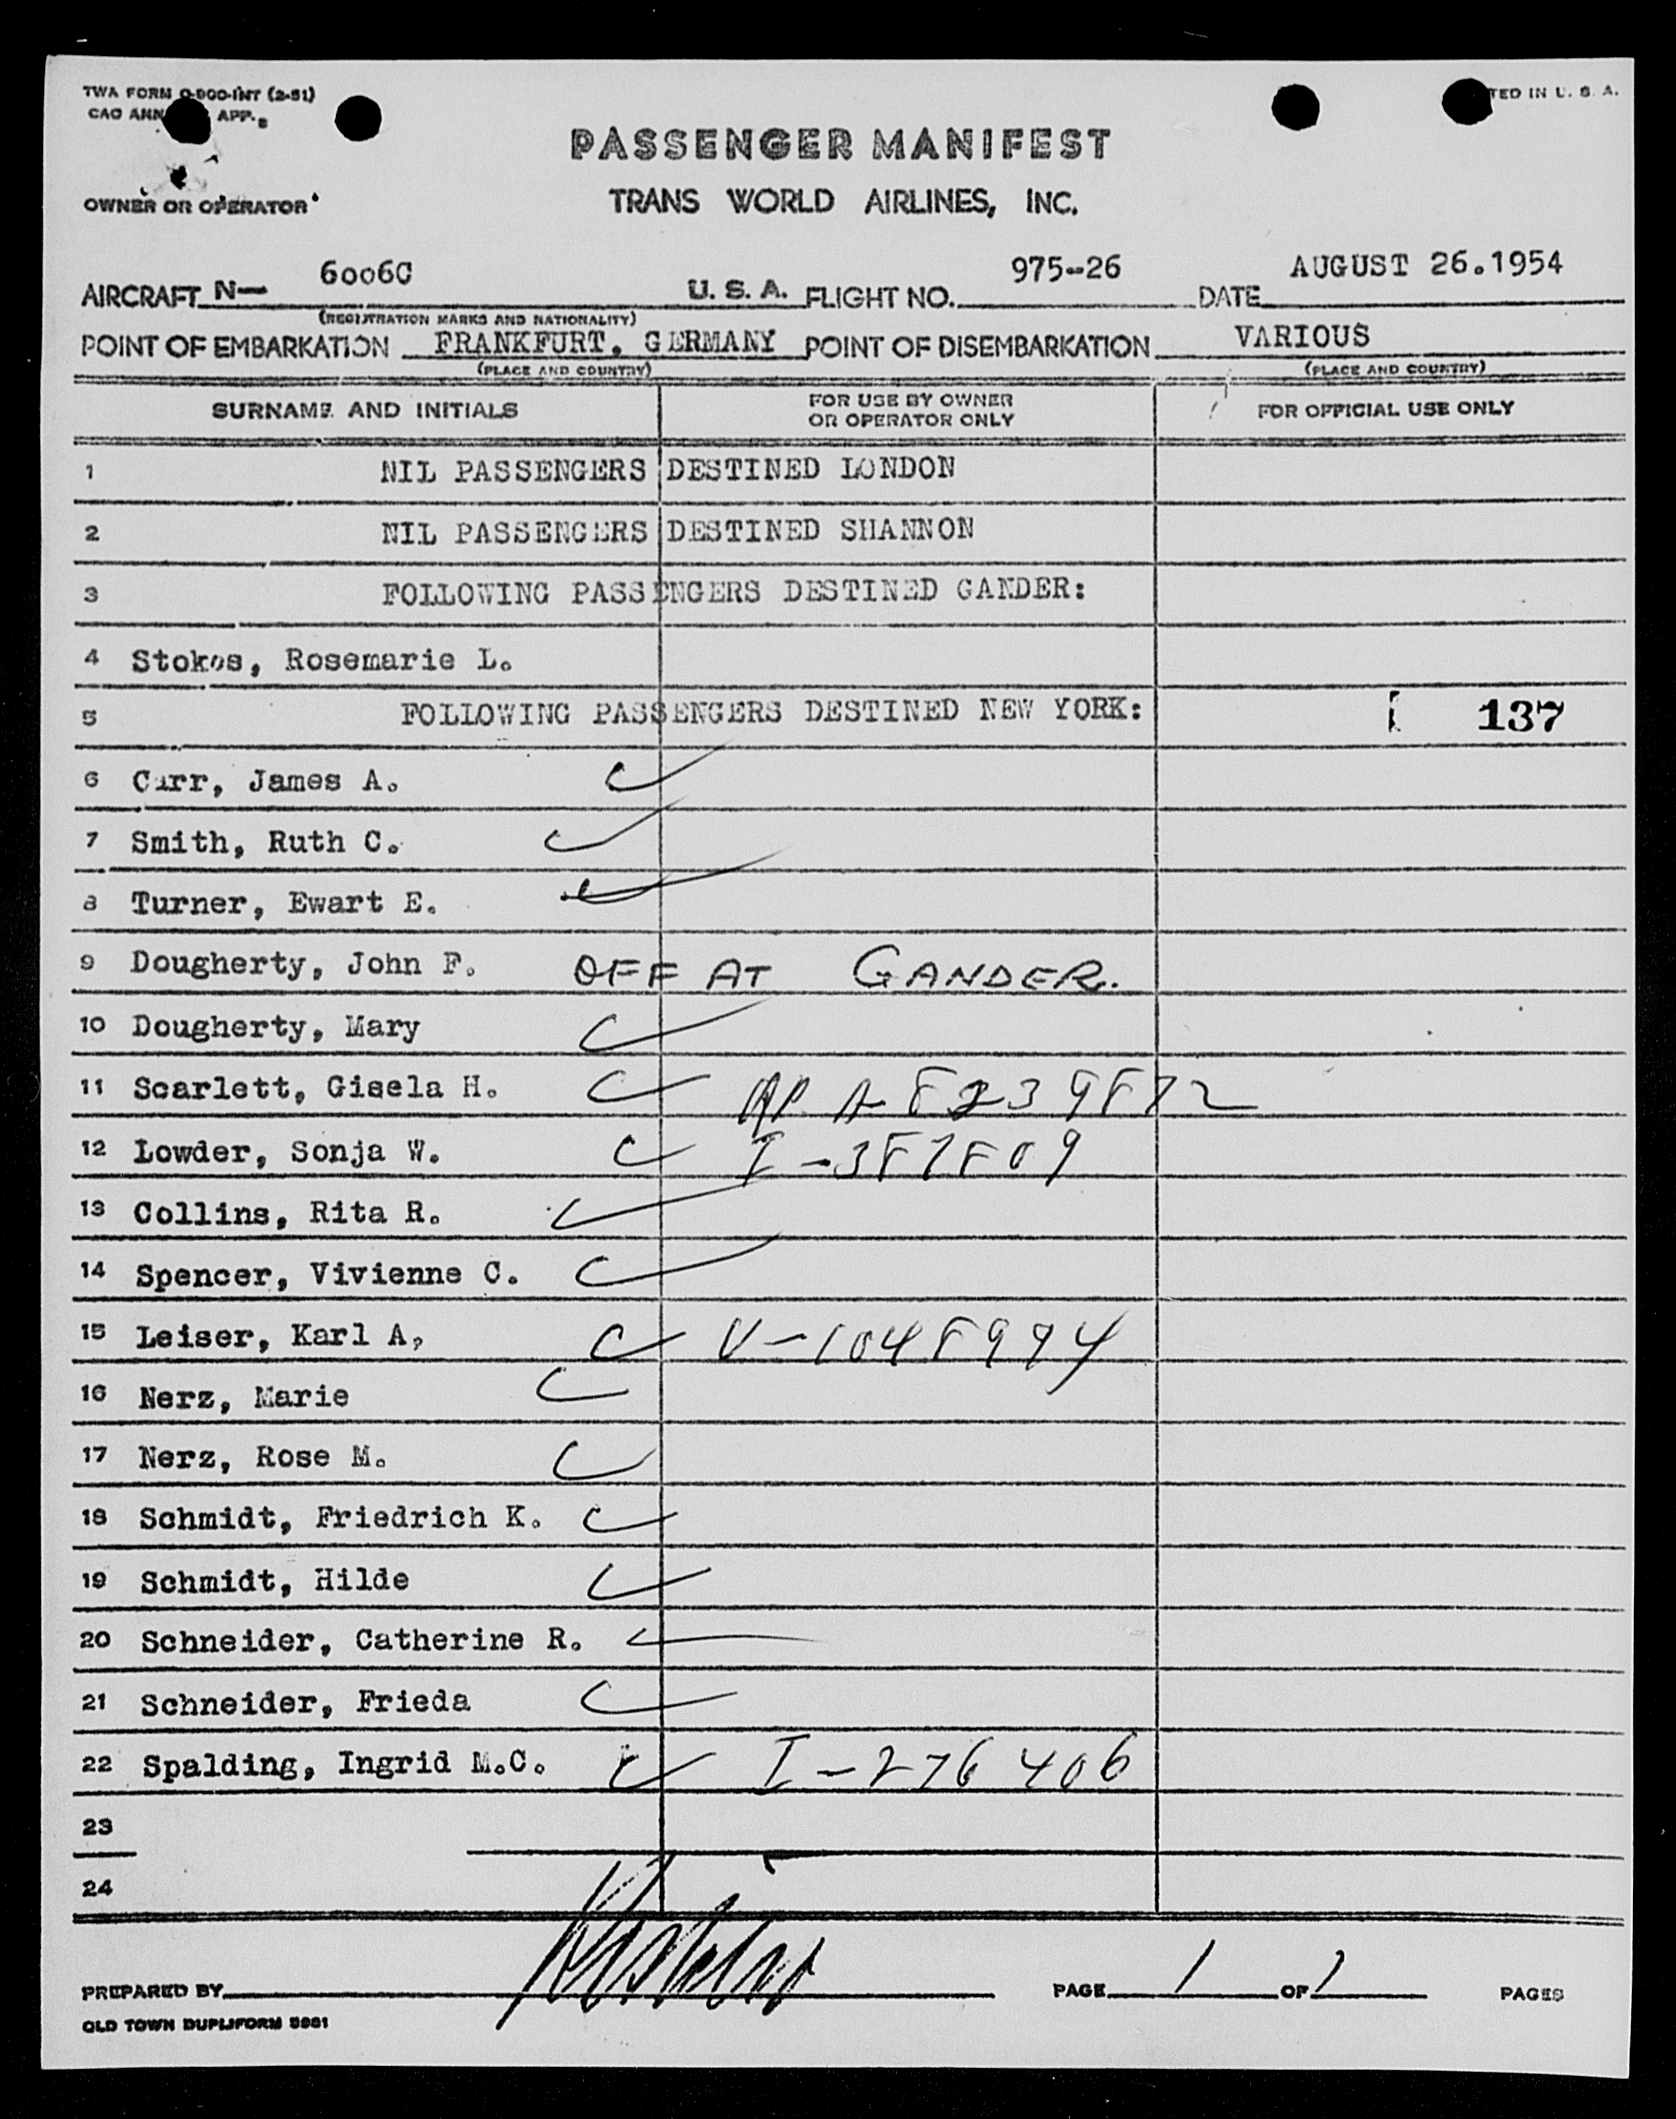 TWA FORM O-900-INT (2-51)
CAO ANN APP.
TED IN U. S. A.
PASSENGER MANIFEST
OWNER OR OPERATOR
TRANS WORLD AIRLINES, INC.
AIRCRAFT N— 6006C U. S. A. FLIGHT NO. 975-26 DATE AUGUST 26.1954
(REGISTRATION MARKS AND NATIONALITY)
POINT OF EMBARKATION FRANKFURT. GERMANY POINT OF DISEMBARKATION VARIOUS
(PLACE AND COUNTRY) (PLACE AND COUNTRY)
SURNAME AND INITIALS FOR USE BY OWNER OR OPERATOR ONLY FOR OFFICIAL USE ONLY
1 NIL PASSENGERS DESTINED LONDON
2 NIL PASSENGERS DESTINED SHANNON
3 FOLLOWING PASSENGERS DESTINED GANDER:
4 Stokes, Rosemarie L.
5 FOLLOWING PASSENGERS DESTINED NEW YORK: 137
6 Carr, James A.
7 Smith, Ruth C.
8 Turner, Ewart E.
9 Dougherty, John F. OFF AT GANDER.
10 Dougherty, Mary
11 Scarlett, Gisela H. A 8239872
12 Lowder, Sonja W. I-387809
13 Collins, Rita R.
14 Spencer, Vivienne C.
15 Leiser, Karl A, V-1048994
16 Nerz, Marie
17 Nerz, Rose M.
18 Schmidt, Friedrich K.
19 Schmidt, Hilde
20 Schneider, Catherine R.
21 Schneider, Frieda
22 Spalding, Ingrid M.C. I-276406
23
24
PREPARED BY PAGE 1 OF 1 PAGES
OLD TOWN DUPLIFORM 5981